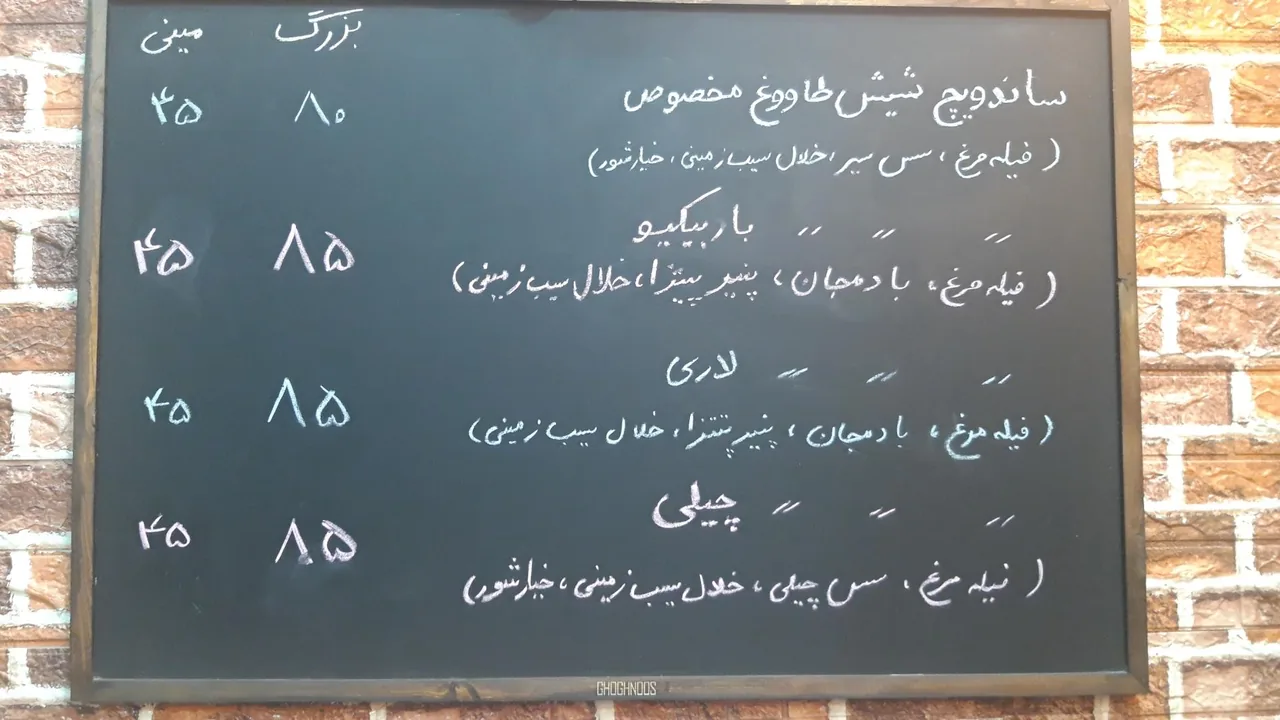 بزرگ مینی
ساندویچ شیش طاووغ مخصوص ۸۰ ۴۵
( فیله مرغ ، سس سیر ، خلال سیب زمینی ، خیارشور )
〃 〃 〃 باربیکیو ۸۵ ۴۵
( فیله مرغ ، بادمجان ، پنیر پیتزا ، خلال سیب زمینی )
〃 〃 〃 لاری ۸۵ ۴۵
( فیله مرغ ، بادمجان ، پنیر پیتزا ، خلال سیب زمینی )
〃 〃 〃 چیلی ۸۵ ۴۵
( فیله مرغ ، سس چیلی ، خلال سیب زمینی ، خیارشور )
GHOGHNOOS